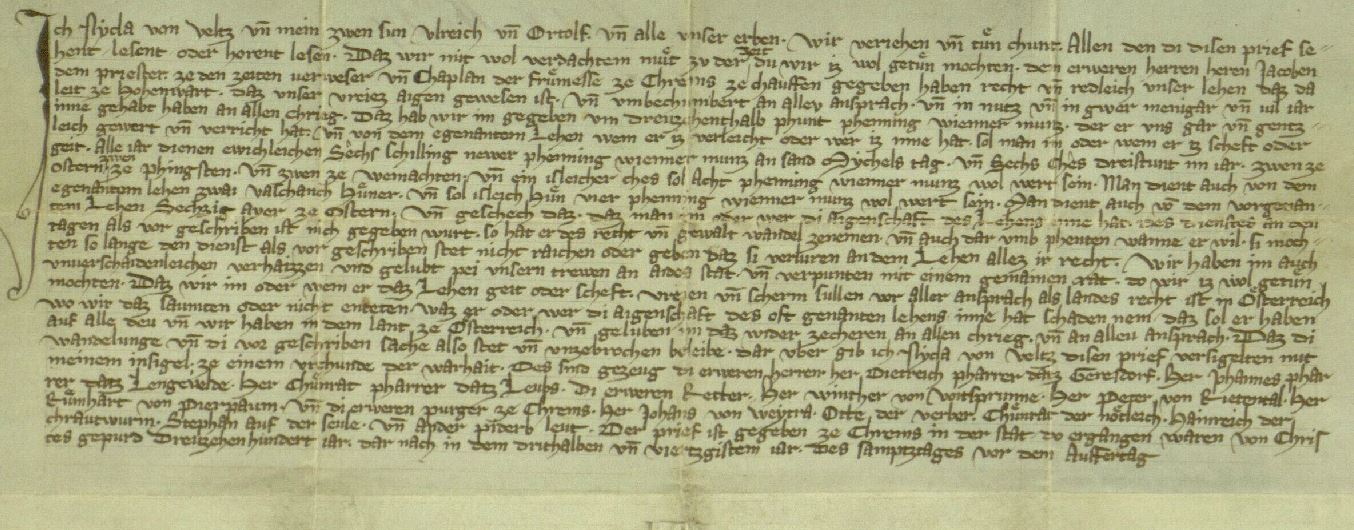 Ich Nycla von Veltz vn̄ mein zwen sun Vlreich vn̄ Ortolf vn̄ alle vnser erben. wir veriehen vn̄ tůn chunt. Allen den di disen prief se-
hent. lesent oder horent lesen. Daz wir mit wol verdachtem můt zv der zeit dů wir iz wol getůn mochten. dem erweren herren heren Jacoben
dem priester. ze den zeiten verweser vn̄ Chaplan der frůmesse ze Chrems ze chauffen gegeben haben recht vn̄ redleich vnser lehen daz da
leit ze Hohenwart. daz vnser vreiez aigen gewesen ist. vn̄ vmbechumbert an allev ansprach. vn̄ in nutz vn̄ in gwer menigar vn̄ iul iar
inne gehabt haben an allen chrieg. Daz hab wir im gegeben vm dreutzehenthalb phunt phenning wienner munz. der er vns gar vn̄ gentz-
leich gewert vn̄ verricht hat. vn̄ von dem egenantem Lehen wem er iz verleicht oder wer iz inne hat. sol man im oder wem er iz scheft oder
geit. alle iar dienen ewichleichen Sechs schilling newer phenning wienner munz an sand Mychels tag. vn̄ Sechs ches dreistunt im iar. zwen ze
ostern. zwen ze phingsten. vn̄ zwen ze weinachten. vn̄ ein isleicher ches sol Acht phenning wienner munz wol wert sein. Man dient auch von dem
egenantem lehen zwai vaschanch Hůner. vn̄ sol isleich Hůn vier phenning wienner munz wol wert sein. Man dient auch vō dem vorgenan-
tem Lehen Sechzig ayer. ze Ostern. vn̄ geschech daz. daz man im oder wer di aigenschaft des Lehens inne hat. des dienstes an den
tagen als vor geschriben ist nich gegeben wurt. so hat er des recht vn̄ gewalt wandel ze nemen. vn̄ auch dar vmb phenten wanne er wil. si moch-
ten so lange den dienst als vor geschriben stet nicht raichen oder geben daz si verluren an dem Lehen allez ir recht. Wir haben im auch
vnverschaidenleichen verhaizzen vnd gelubt pei vnsern trewen an aides stat. vn̄ verpunten mit einem gemainen rat. do wir iz wol getůn
mochten. Daz wir im oder wem er daz Lehen geit oder scheft. vreyen vn̄ scherm sullen vor aller ansprach als landes recht ist in Osterreich
wo wir daz saumten oder nicht enteten. waz er oder wer di aigenschaft des oft genanten lehens inne hat schaden nem. daz sol er haben
auf alle deu vn̄ wir haben in dem lant ze Osterreich. vn̄ geluben im daz wider ze cheren an allen chrieg. vn̄ an alleu ansprach. Daz di
wandelunge vn̄ di vor geschriben sache also stet vn̄ vnzebrochen beleibe. dar vber gib ich Nycla von Veltz disen prief versigelten mit
meinem insigel. ze einem vrchunde der warhait. Des sind gezeug di erweren herren her Dietreich pharrer datz Gerestorf. Her Johannes phar
rer datz Lengevelde. Her Chunrat pharrer datz Leubs. di erweren Retter. Her winther von witsprunne. Her Peter von Rietental. Her
Raumhart von Pierpaum. vn̄ di erweren purger ze Chrems. Her Johans von weytra. Otte der verber. Chůnrat der hőtleich. Hainreich der
chrautwurm. Stephan auf der seule. vn̄ ander piderb leut. Der prief ist gegeben ze Chrems in der stat. do ergangen waren von Chris
tes gepurd Dreutzehenhundert iar. dar nach in dem dritthalben vn̄ viertzgistem iar. des samptztages vor dem Auffertag